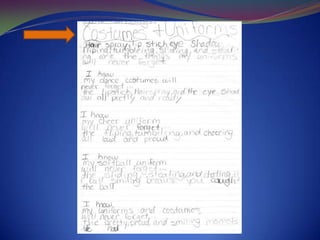 Costumes + Uniforms
Hair spray, lip stick, eye Shadow
tumbling, and
ing are the things my uniforms
will never forget.
I know
my dance costumes will
never forget
the lipstick, Hairspray, and the eye shad
ow all pretty and ready
I know
my cheer uniform
will never forget
the tumbling, and cheering
all loud and proud
I know
my softball uniform
will never forget
the sliding stealing, and
ball smiling because you caught
the ball
I know
my uniforms and costumes
will never forget
the pretty, proud and smiling moments
we had